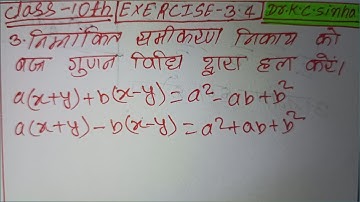 class-10th EXERCISE-3.4 Dr.K.C.Sinha
3. निम्नांकित समीकरण निकाय को
वज्र गुणन विधि द्वारा हल करें।
a(x+y)+b(x-y)=a²-ab+b²
a(x+y)-b(x-y)=a²+ab+b²